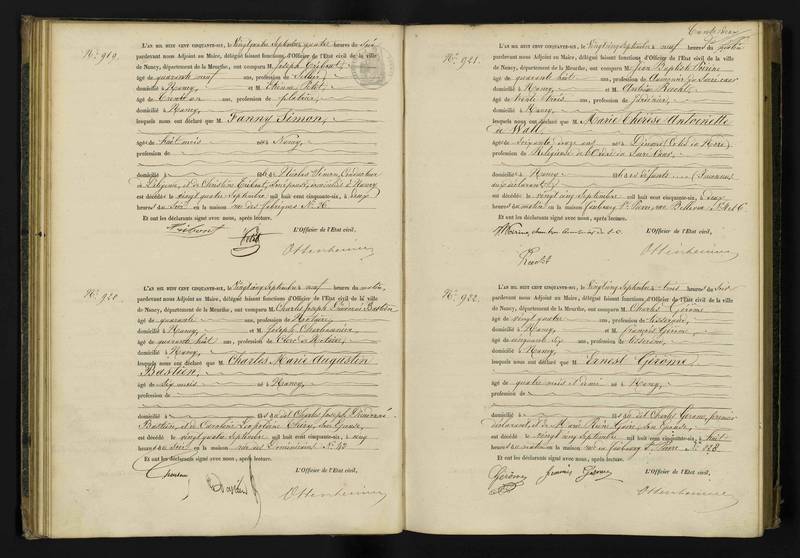 N.° 919.
L'AN MIL HUIT CENT CINQUANTE-SIX, le vingtquatre Septembre quatre heures du soir
pardevant nous Adjoint au Maire, délégué faisant fonctions d'Officier de l'Etat civil de la ville
de Nancy, département de la Meurthe, ont comparu M. Joseph
âgé de quarante neuf ans, profession de Sellier
domicilié à Nancy, et M. Etienne
âgé de ans, profession de platrier,
domicilié à Nancy,
lesquels nous ont déclaré que M. Fanny Simon,
âgée de huit mois née à Nancy,
profession de
domicilié à fille de Nicolas Simon,
et de Christine domiciliés à Nancy
est décédée le vingt quatre Septembre mil huit cent cinquante-six, à deux
heures du soir en la maison rue des fabriques N.° 26
Et ont les déclarants signé avec nous, après lecture.
L'Officier de l'Etat civil,
Ottenheimer
N.° 920.
L'AN MIL HUIT CENT CINQUANTE-SIX, le vingtcinq Septembre neuf heures du matin,
pardevant nous Adjoint au Maire, délégué faisant fonctions d'Officier de l'Etat civil de la ville
de Nancy, département de la Meurthe, ont comparu M. Charles Joseph Dieudonné Bastien
âgé de quarante ans, profession de Notaire,
domicilié à Nancy, et M. Joseph
âgé de quarante huit ans, profession de Clerc de Notaire,
domicilié à Nancy,
lesquels nous ont déclaré que M. Charles Marie Augustin
Bastien,
âgé de six mois né à Nancy,
profession de
domicilié à fils du dit Charles Joseph Dieudonné
Bastien, et de Caroline Léopoldine Thiéry, son Epouse,
est décédé le vingt quatre Septembre mil huit cent cinquante-six, à cinq
heures du soir en la maison rue des Dominicains N.° 40
Et ont les déclarants signé avec nous, après lecture.
L'Officier de l'Etat civil,
Bastien
Ottenheimer
N.° 921.
L'AN MIL HUIT CENT CINQUANTE-SIX, le vingtcinq Septembre neuf heures du matin
pardevant nous Adjoint au Maire, délégué faisant fonctions d'Officier de l'Etat civil de la ville
de Nancy, département de la Meurthe, ont comparu M. Jean Baptiste
âgé de quarante huit ans, profession de Aumônier du Sacré cœur
domicilié à Nancy, et M. Antoine
âgé de trente trois ans, profession de Jardinier,
domicilié à Nancy,
lesquels nous ont déclaré que M. Marie Thérèse Antoinette
de Wall,
âgée de soixante onze ans née à Dinant
profession de Religieuse de l'Ordre du Sacré Cœur,
domiciliée à Nancy fille des défunts
est décédée le vingt cinq Septembre mil huit cent cinquante-six, à deux
heures du matin en la maison faubourg St. Pierre, rue
Et ont les déclarants signé avec nous, après lecture.
L'Officier de l'Etat civil,
Ottenheimer
N.° 922.
L'AN MIL HUIT CENT CINQUANTE-SIX, le vingtcinq Septembre trois heures du soir
pardevant nous Adjoint au Maire, délégué faisant fonctions d'Officier de l'Etat civil de la ville
de Nancy, département de la Meurthe, ont comparu M. Charles Gérome
âgé de vingt quatre ans, profession de tisserand,
domicilié à Nancy, et M. François Gérome
âgé de cinquante six ans, profession de tisserand,
domicilié à Nancy,
lesquels nous ont déclaré que M. Ernest Gérome,
âgé de quatre mois et demi né à Nancy,
profession de
domicilié à fils du dit Charles Gérome, premier
déclarant, et de Marie son Epouse,
est décédé le vingt cinq Septembre mil huit cent cinquante-six, à huit
heures du matin en la maison rue du faubourg St. Pierre N.° 228
Et ont les déclarants signé avec nous, après lecture.
L'Officier de l'Etat civil,
Gérome François Gérome
Ottenheimer